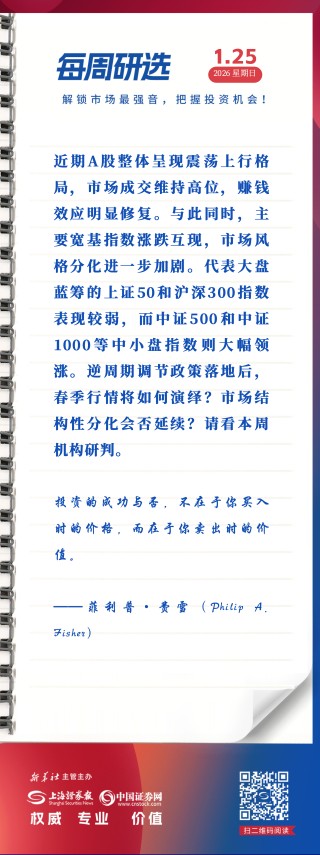 每周研选
1.25
2026 星期日
解锁市场最强音，把握投资机会！
近期A股整体呈现震荡上行格
局，市场成交维持高位，赚钱
效应明显修复。与此同时，主
要宽基指数涨跌互现，市场风
格分化进一步加剧。代表大盘
蓝筹的上证50和沪深300指数
表现较弱，而中证500和中证
1000等中小盘指数则大幅领
涨。逆周期调节政策落地后，
春季行情将如何演绎？市场结
构性分化会否延续？请看本周
机构研判。
投资的成功与否，不在于你买入
时的价格，而在于你卖出时的价
值。
——菲利普·费雪（Philip A.
Fisher）
新华社 主管主办
上海证券报 中国证券网
Shanghai Securities News www.cnstock.com
权威 专业 价值
扫二维码阅读